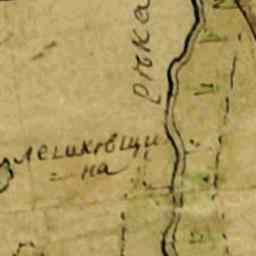 рѣка
лешковщи=
на